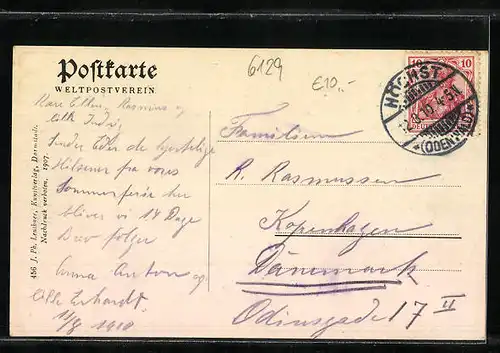 Postkarte
WELTPOSTVEREIN.
6129
€10.-
10 10
HÖCHST
(ODENWALD)
Kære Ellen, Rasmus og
Sender Eder de hjertelige
Hilsener fra vores
Sommerferie her
bliver vi 14 Dage
Brev følger
Anna Anton og
Erhardt
11/8 1910
Familien
R. Rasmussen
Kopenhagen
Dänemark
Odinsgade 17 II
456 J. Ph. Leuthner, Kunstverlag, Darmstadt.
Nachdruck verboten. 1907.